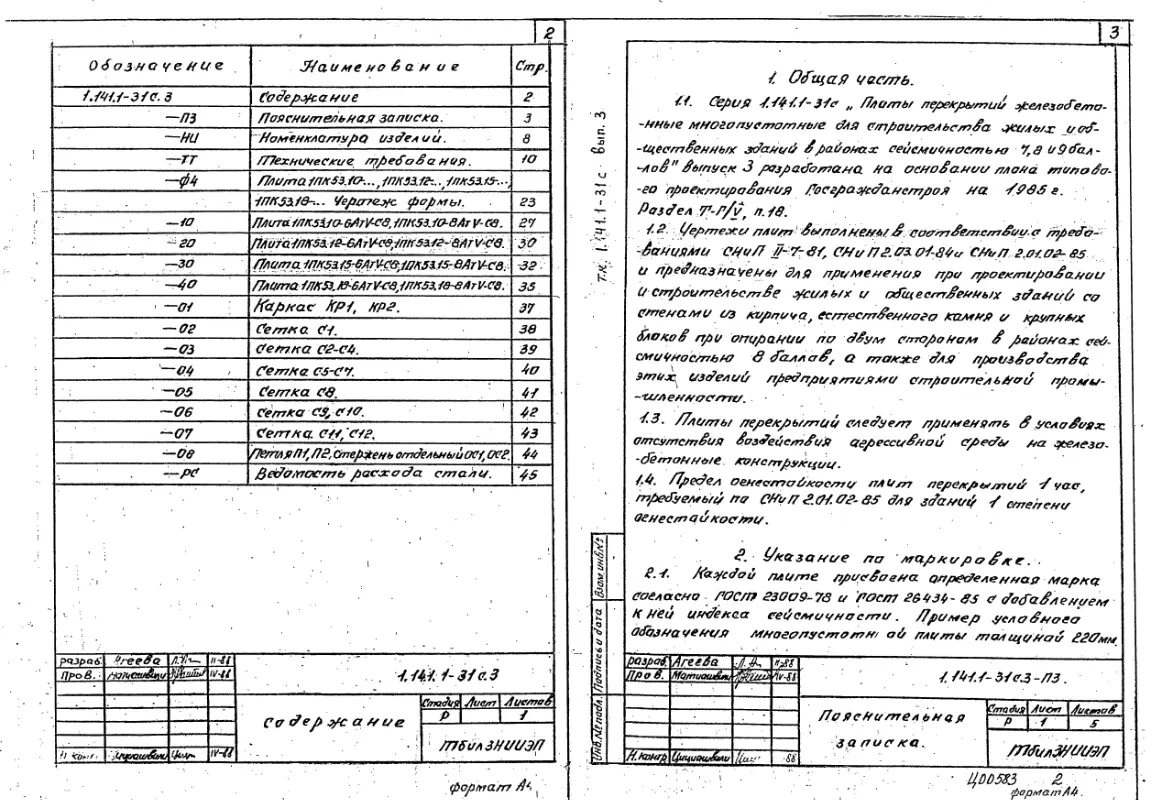 2
Обозначение Наименование Стр.
1.141.1-31с.3 Содержание 2
—ПЗ Пояснительная записка. 3
—НИ Номенклатура изделий. 8
—ТТ Технические требования. 10
—Ф4 Плита 1ПК53.10-..., 1ПК53.12-..., 1ПК53.15-...,
1ПК53.18-... Чертеж формы. 23
—10 Плита 1ПК53.10-6АтV-С8, 1ПК53.10-8АтV-С8. 27
—20 Плита 1ПК53.12-6АтV-С8, 1ПК53.12-8АтV-С8. 30
—30 Плита 1ПК53.15-6АтV-С8, 1ПК53.15-8АтV-С8. 32
—40 Плита 1ПК53.18-6АтV-С8, 1ПК53.18-8АтV-С8. 35
—01 Каркас КР1, КР2. 37
—02 Сетка С1. 38
—03 Сетка С2-С4. 39
—04 Сетка С5-С7. 40
—05 Сетка С8. 41
—06 Сетка С9, С10. 42
—07 Сетка С11, С12. 43
—08 Петля П1, П2. Стержень отдельный ОС1, ОС2. 44
—РС Ведомость расхода стали. 45
разраб. Агеева II-88
Пров. IV-88
1.141.1-31с.3
Содержание
Стадия Лист Листов
Р 1
ТбилЗНИИЭП
Н.контр. IV-88
формат А4
3
т.к. 1.141.1-31с Вып. 3
1. Общая часть.
1.1. Серия 1.141.1-31с „Плиты перекрытий железобето-
-нные многопустотные для строительства жилых и об-
-щественных зданий в районах сейсмичностью 7,8 и 9 бал-
-лов" Выпуск 3 разработана на основании плана типово-
-го проектирования Госгражданстроя на 1985 г.
Раздел Т-Г/V, п.18.
1.2. Чертежи плит выполнены в соответствии с требо-
-ваниями СНиП II-7-81, СНиП 2.03.01-84 и СНиП 2.01.02-85
и предназначены для применения при проектировании
и строительстве жилых и общественных зданий со
стенами из кирпича, естественного камня и крупных
блоков при опирании по двум сторонам в районах сей-
смичностью 8 баллов, а также для производства
этих изделий предприятиями строительной промы-
-шленности.
1.3. Плиты перекрытий следует применять в условиях
отсутствия воздействия агрессивной среды на железо-
-бетонные конструкции.
1.4. Предел огнестойкости плит перекрытий 1 час,
требуемый по СНиП 2.01.02-85 для зданий 1 степени
огнестойкости.
2. Указание по маркировке.
2.1. Каждой плите присвоена определенная марка
согласно ГОСТ 23009-78 и ГОСТ 26434-85 с добавлением
к ней индекса сейсмичности. Пример условного
обозначения многопустотной плиты толщиной 220мм
Взам.инв.№
Подпись и дата
Инв.№ подл.
разраб. Агеева II-88
Пров. IV-88
1.141.1-31с.3-ПЗ.
Пояснительная
записка.
Стадия Лист Листов
Р 1 5
ТбилЗНИИЭП
Н.контр 88
Ц00583 2
формат А4.